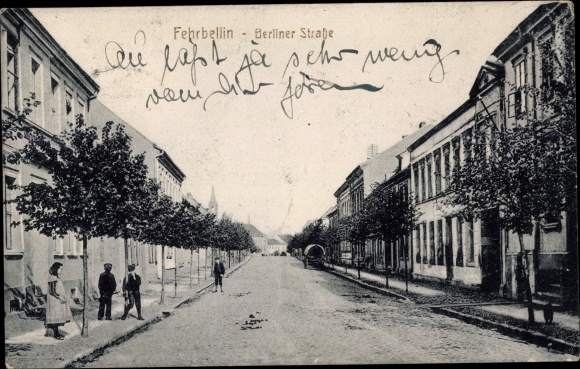 Fehrbellin - Berliner Straße
Du läßt ja sehr wenig
von Dir hören